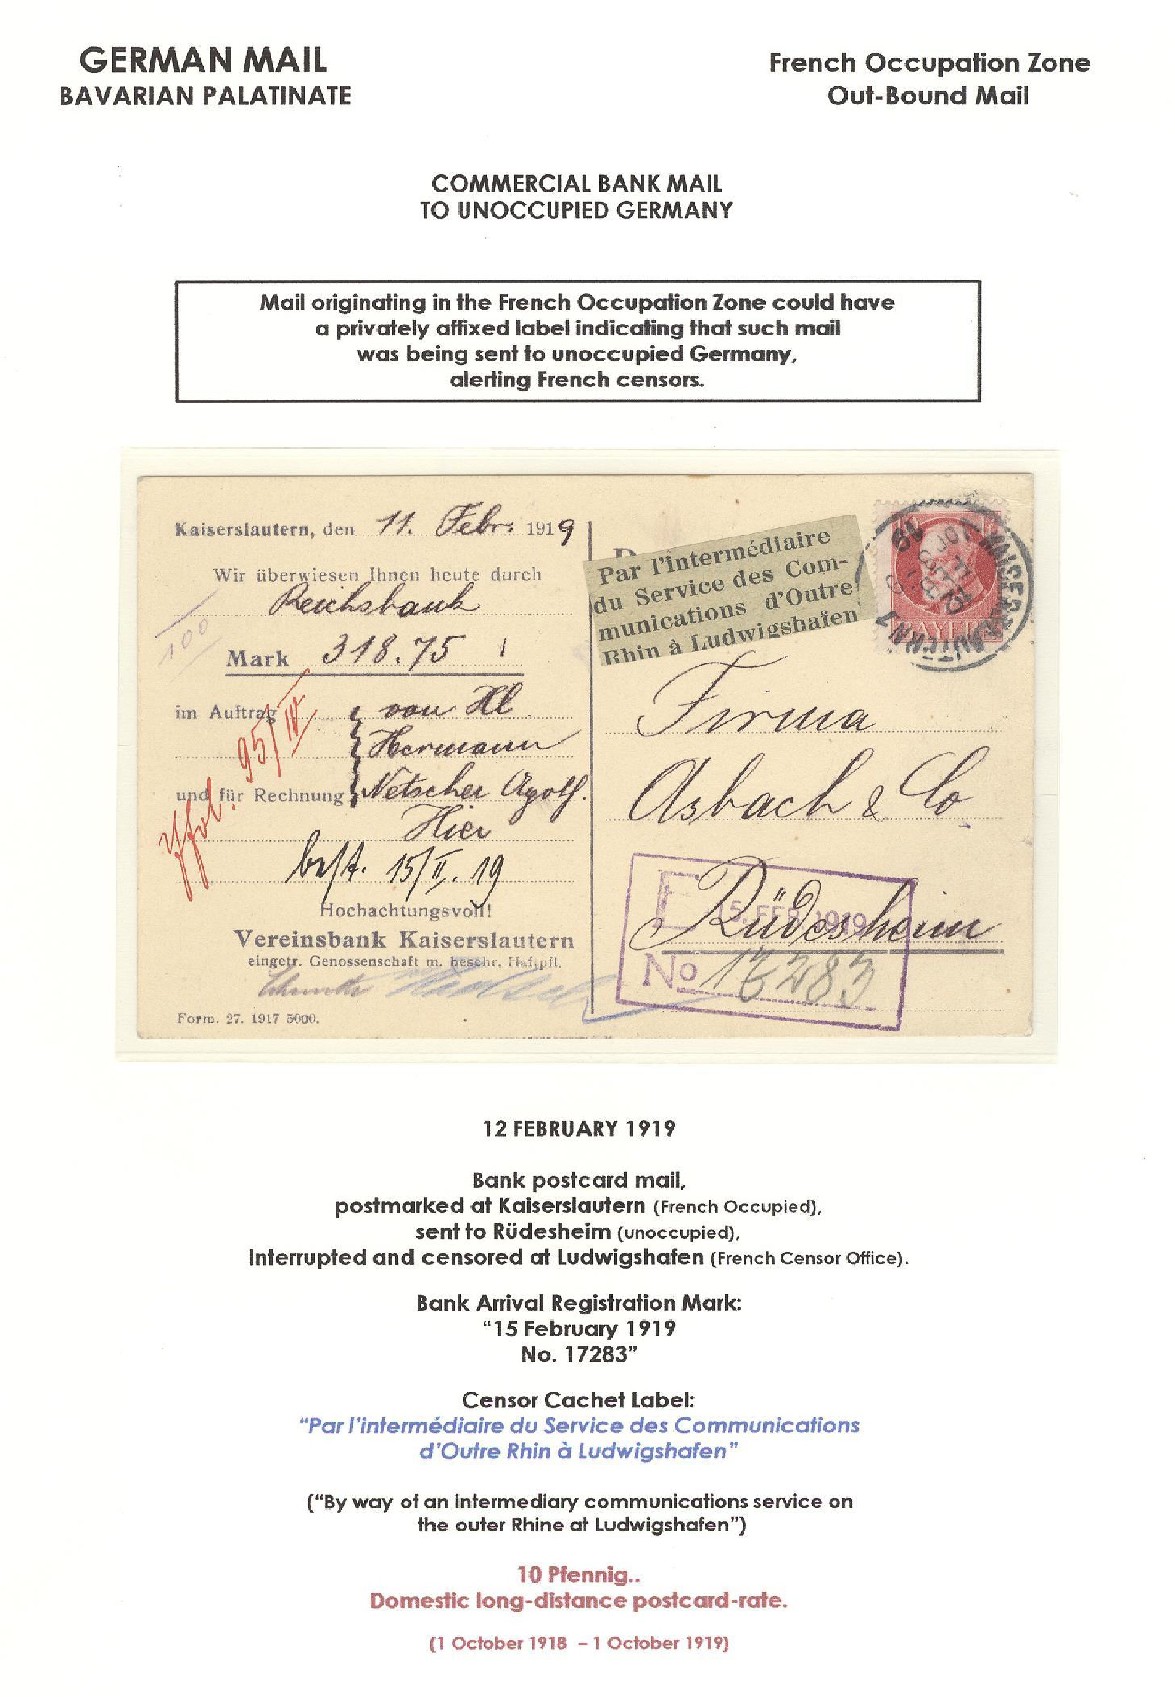 GERMAN MAIL
BAVARIAN PALATINATE
French Occupation Zone
Out-Bound Mail
COMMERCIAL BANK MAIL
TO UNOCCUPIED GERMANY
Mail originating in the French Occupation Zone could have
a privately affixed label indicating that such mail
was being sent to unoccupied Germany,
alerting French censors.
Kaiserslautern, den 11. Febr. 1919
Wir überwiesen Ihnen heute durch
Reichsbank
100
Mark 318.75
im Auftrag von Hl
Hermann
und für Rechnung Netscher
Hier
95/IV
15/II. 19
Hochachtungsvoll!
Vereinsbank Kaiserslautern
eingetr. Genossenschaft m. beschr. Haftpfl.
Form. 27. 1917 5000.
Par l'intermédiaire
du Service des Com-
munications d'Outre
Rhin à Ludwigshafen
KAISERSLAUTERN
BAYERN
Firma
Asbach & Co
Rüdesheim
E 15. FEB. 1919
No 17283
12 FEBRUARY 1919
Bank postcard mail,
postmarked at Kaiserslautern (French Occupied),
sent to Rüdesheim (unoccupied),
Interrupted and censored at Ludwigshafen (French Censor Office).
Bank Arrival Registration Mark:
"15 February 1919
No. 17283"
Censor Cachet Label:
"Par l'intermédiaire du Service des Communications
d'Outre Rhin à Ludwigshafen"
("By way of an intermediary communications service on
the outer Rhine at Ludwigshafen")
10 Pfennig..
Domestic long-distance postcard-rate.
(1 October 1918 – 1 October 1919)